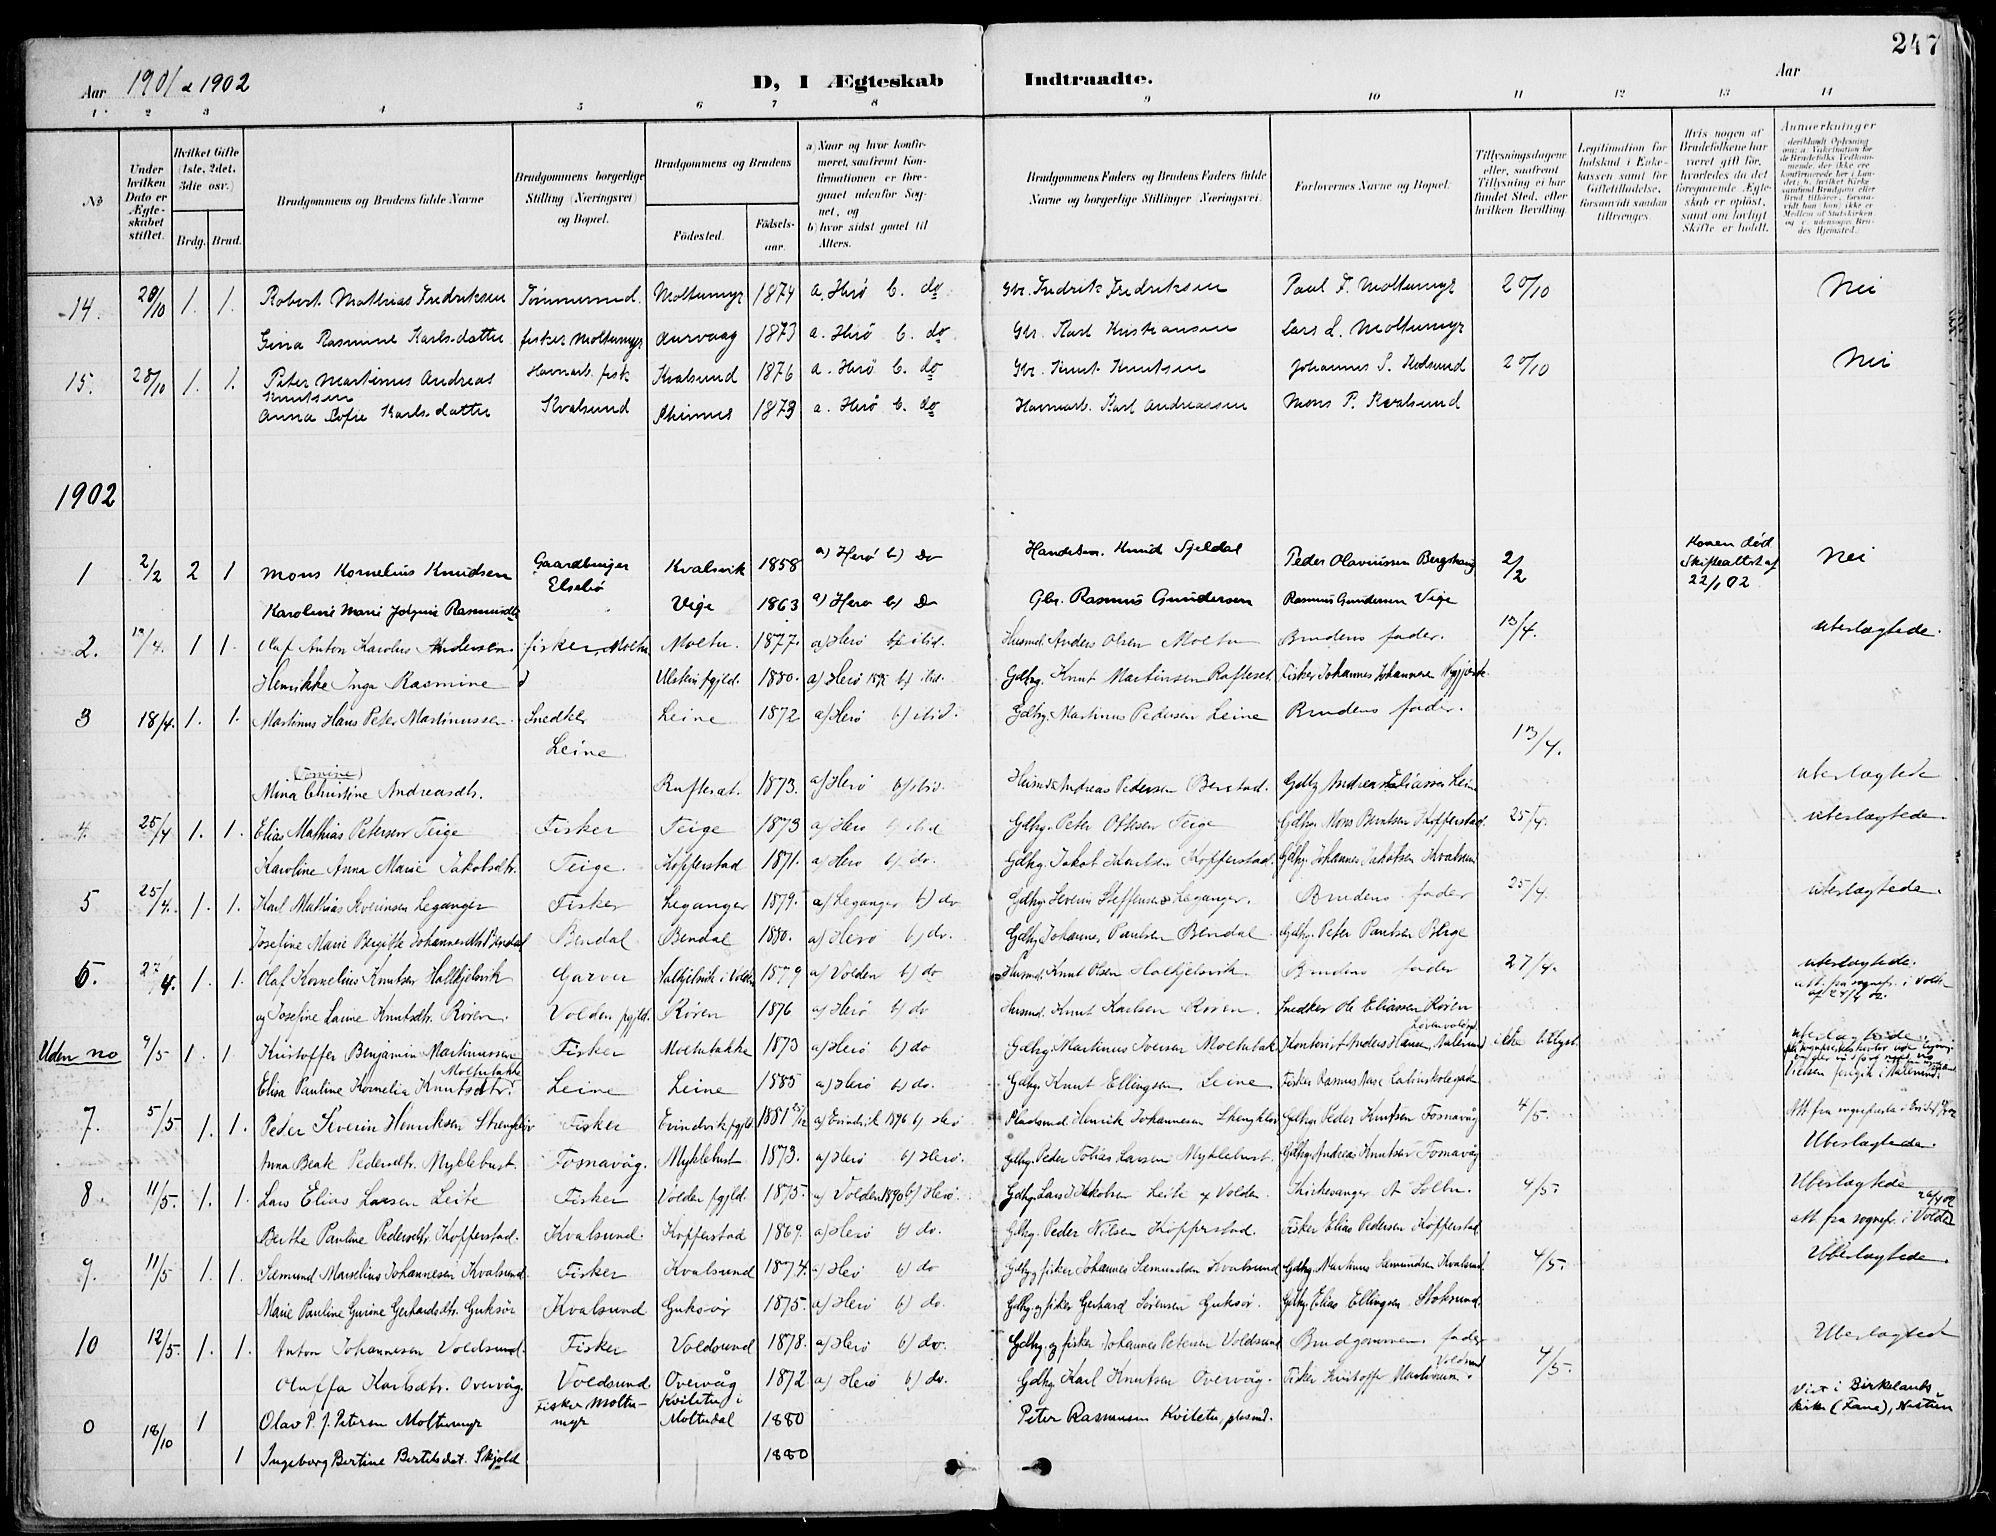 247
Aar 1901 & 1902 D, I Ægteskab Indtraadte. Aar
1 2 3 4 5 6 7 8 9 10 11 12 13 14
No
Under hvilken Dato er Ægteskabet stiftet.
Hvilket Gifte (1ste, 2det, 3die osv.)
Brdg. Brud.
Brudgommens og Brudens fulde Navne
Brudgommens borgerlige Stilling (Næringsvei) og Bopæl.
Brudgommens og Brudens
Födested. Födsels-aar.
a) Naar og hvor konfirmeret, saafremt Konfirmationen er foregaaet udenfor Sognet, og
b) hvor sidst gaaet til Alters.
Brudgommens Faders og Brudens Faders fulde Navne og borgerlige Stillinger (Næringsvei).
Forlovernes Navne og Bopæl.
Tillysningsdagene eller, saafremt Tillysning ei har fundet Sted, efter hvilken Bevilling.
Legitimation for Indskud i Enkekassen samt for Giftetilladelse, forsaavidt saadan tiltrænges.
Hvis nogen af Brudefolkene har været gift før, hvorledes da det foregaaende Ægteskab er opløst, samt om lovligt Skifte er holdt.
Anmerkninger
14. 20/10 1. 1. Robert Mathias Fredriksen Tömmermd. Moltumyr 1874 a. Herö b. do Gbr. Fredrik Fredriksen Paul F. Moltumyr 20/10 Nei
Gina Rasmine Karlsdatter fisker Moltumyr Aurvaag 1873 a. Herö b. do Gbr. Karl Kristiansen Lars L. Moltumyr
15. 28/10 1. 1. Peter Martinus Andreas Knutsen fisk Kvalsund 1876 a. Herö b. do Gbr. Knut Knutsen Johannes S. Kvalsund 20/10 Nei
Anna Sofie Karlsdatter Kvalsund 1873 a. Herö b. do Karl Andreassen Mons P. Kvalsund
1902
1 2/2 2 1 Mons Kornelius Knudsen Gaardbruger Elsebö Kvalsvik 1858 a) Herö b) Do Handelsm. Knud Sjeldal Peder Olavinssen 2/2 Konen död Skifteattst af 22/1 02 Nei
Karoline Marie Rasmusdtr Vige 1863 a) Herö b) Do Gbr. Rasmus Gundersen Rasmus Gundersen Vige
2. 13/4. 1 1. Olaf Anton Karolus Andersen. fisker, Moltu Moltu. 1877. a) Herö b) ibid. Husmd. Anders Olsen Moltu Brudens fader. 13/4. Uberlagtede.
Henrikke Inga Rasmine Ulstein pgjld. 1880. a) Herö b) ibid. Gdbg. Knut Martinsen Rafteset. Fisker Johannes Johannesen
3 18/4. 1. 1. Martinus Hans Peter Martinussen. Snedker Leine 1872 a) Herö b) ibid. Gdbg. Martinus Pedersen Leine Brudens fader. 13/4.
Leine
Mina (Omine) Christine Andreasdtr. Rafteset. 1873. a) Herö b) ibid. Husmd. Andreas Pedersen Gdbg Andreas Eliassen Leine Uberlagtede
4. 25/4 1. 1. Elias Mathias Petersen Teige Fisker Teige 1873 a) Herö b) ibid Gdbg. Peter Ottesen Teige Gdbg. Mons Berntsen Kopperstad. 25/4. Uberlagtede.
Karoline Anna Marie Jakobsdtr. Teige. Kopperstad 1871. a) Herö b) do. Gdbg. Jakob Karlsen Kopperstad. Gdbg. Johannes Jakobsen Kvalsund
5 25/4. 1. 1. Karl Mathias Severinsen Leganger Fisker Leganger 1879. a) Leganger b) do Gdbg. Severin Steffensen Leganger. Brudens fader 25/4. Uberlagtede.
Josefine Marie Bergitte Johannesdtr Bendal Bendal Bendal 1880. a) Herö b) do. Gdbg. Johannes Paulsen Bendal. Gdbg. Peter Paulsen Berge
6. 27/4. 1. 1. Olaf Kornelius Knutsen Halkjelsvik Garver Halkjelsvik i Volden 1879 a) Volden b) do Husmd. Knut Olsen Halkjelsvik. Brudens fader 27/4. Uberlagtede.
att. fra sognepr. i Volden af 24/4 02.
og Josefine Laurine Knutsdtr. Rören. Volden pgjld. Rören 1876 a) Herö b) do Husmd. Knut Karlsen Rören. Snedker Ole Eliassen Rören
Uden no 9/5 1 1 Kristoffer Benjamin Martinussen Moltubakke Fisker Moltubakke 1873 a) Herö b) do Gdbg. Martinus Iversen Moltubak. Kontorist Anders Hansen, Aalesund ikke tillyst Uberlagtede.
Elisa Pauline Kornelia Knutsdtr. Leine Leine 1885 a) Herö b) do. Gdbg. Knut Ellingsen Leine Fisker Rasmus Aase
7. 5/5 1. 1. Peder Severin Henriksen Fisker Evindvik pgjld 1881 a) Evindvik 1896 b) Herö Pladsmd. Henrik Johannesen Gdbg. Peder Knutsen Fosnavåg 4/5. Att. fra sogneprest i
Anna Beate Pedersdtr. Myklebust. Fosnavåg. Myklebust 1873. a) Herö b) Herö. Gdbg. Peder Tobias Larsen Myklebust. Gdbg. Andreas Knutsen Fosnavåg Uberlagtede.
8. 11/5. 1. 1. Lars Elias Larsen Leite Fisker Volden pgjld. 1875. a) Volden 1890 b) Herö. Gdbg. Lars Jakobsen Leite Volden. Kirkesanger A. Solbu. 4/5. Uberlagtede
att fra sognepr. i Volden 26/4 02
Berthe Pauline Pedersdtr. Kopperstad. Kvalsund. Kopperstad 1869. a) Herö b) do. Gdbg. Peder Nilsen Kopperstad. Fisker Elias Pedersen Kopperstad
9. 11/5 1. 1. Semund Marselius Johannesen Kvalsund. Fisker Kvalsund 1874. a) Herö b) do Gdbg. og fisker Johannes Semundsen Kvalsund Gdbg. Martinus Semundsen Kvalsund 4/5. Uberlagtede.
Marie Pauline Gurine Gerhardsdtr. Gurskö Kvalsund Gurskö 1875. a) Herö b) do. Gdbg. og fisker Gerhard Sörensen Gurskö. Gdbg. Elias Ellingsen Stoksund.
10 12/5. 1. 1. Anton Johannesen Voldsund. Fisker Voldsund 1878. a) Herö b) do. Gdbg. og fisker Johannes Petersen Voldsund Brudgommens fader 4/5. Uberlagtede
Oluffa Karlsdtr. Overvåg. Voldsund Overvåg 1872 a) Herö b) do. Gdbg. Karl Knutsen Overvåg. Fisker Kristoffer Martinsen Voldsund.
0 18/10 1 Olav P. J. Petersen Moltumyr Fisker Moltumyr Kvileteig i Moltudal 1880 Peter Rasmussen Kviletei, plasmd. Viet i Birkelands kirke (Fana), Nestun
1 Ingeborg Bertine Bertelsdat. Skjold 1880